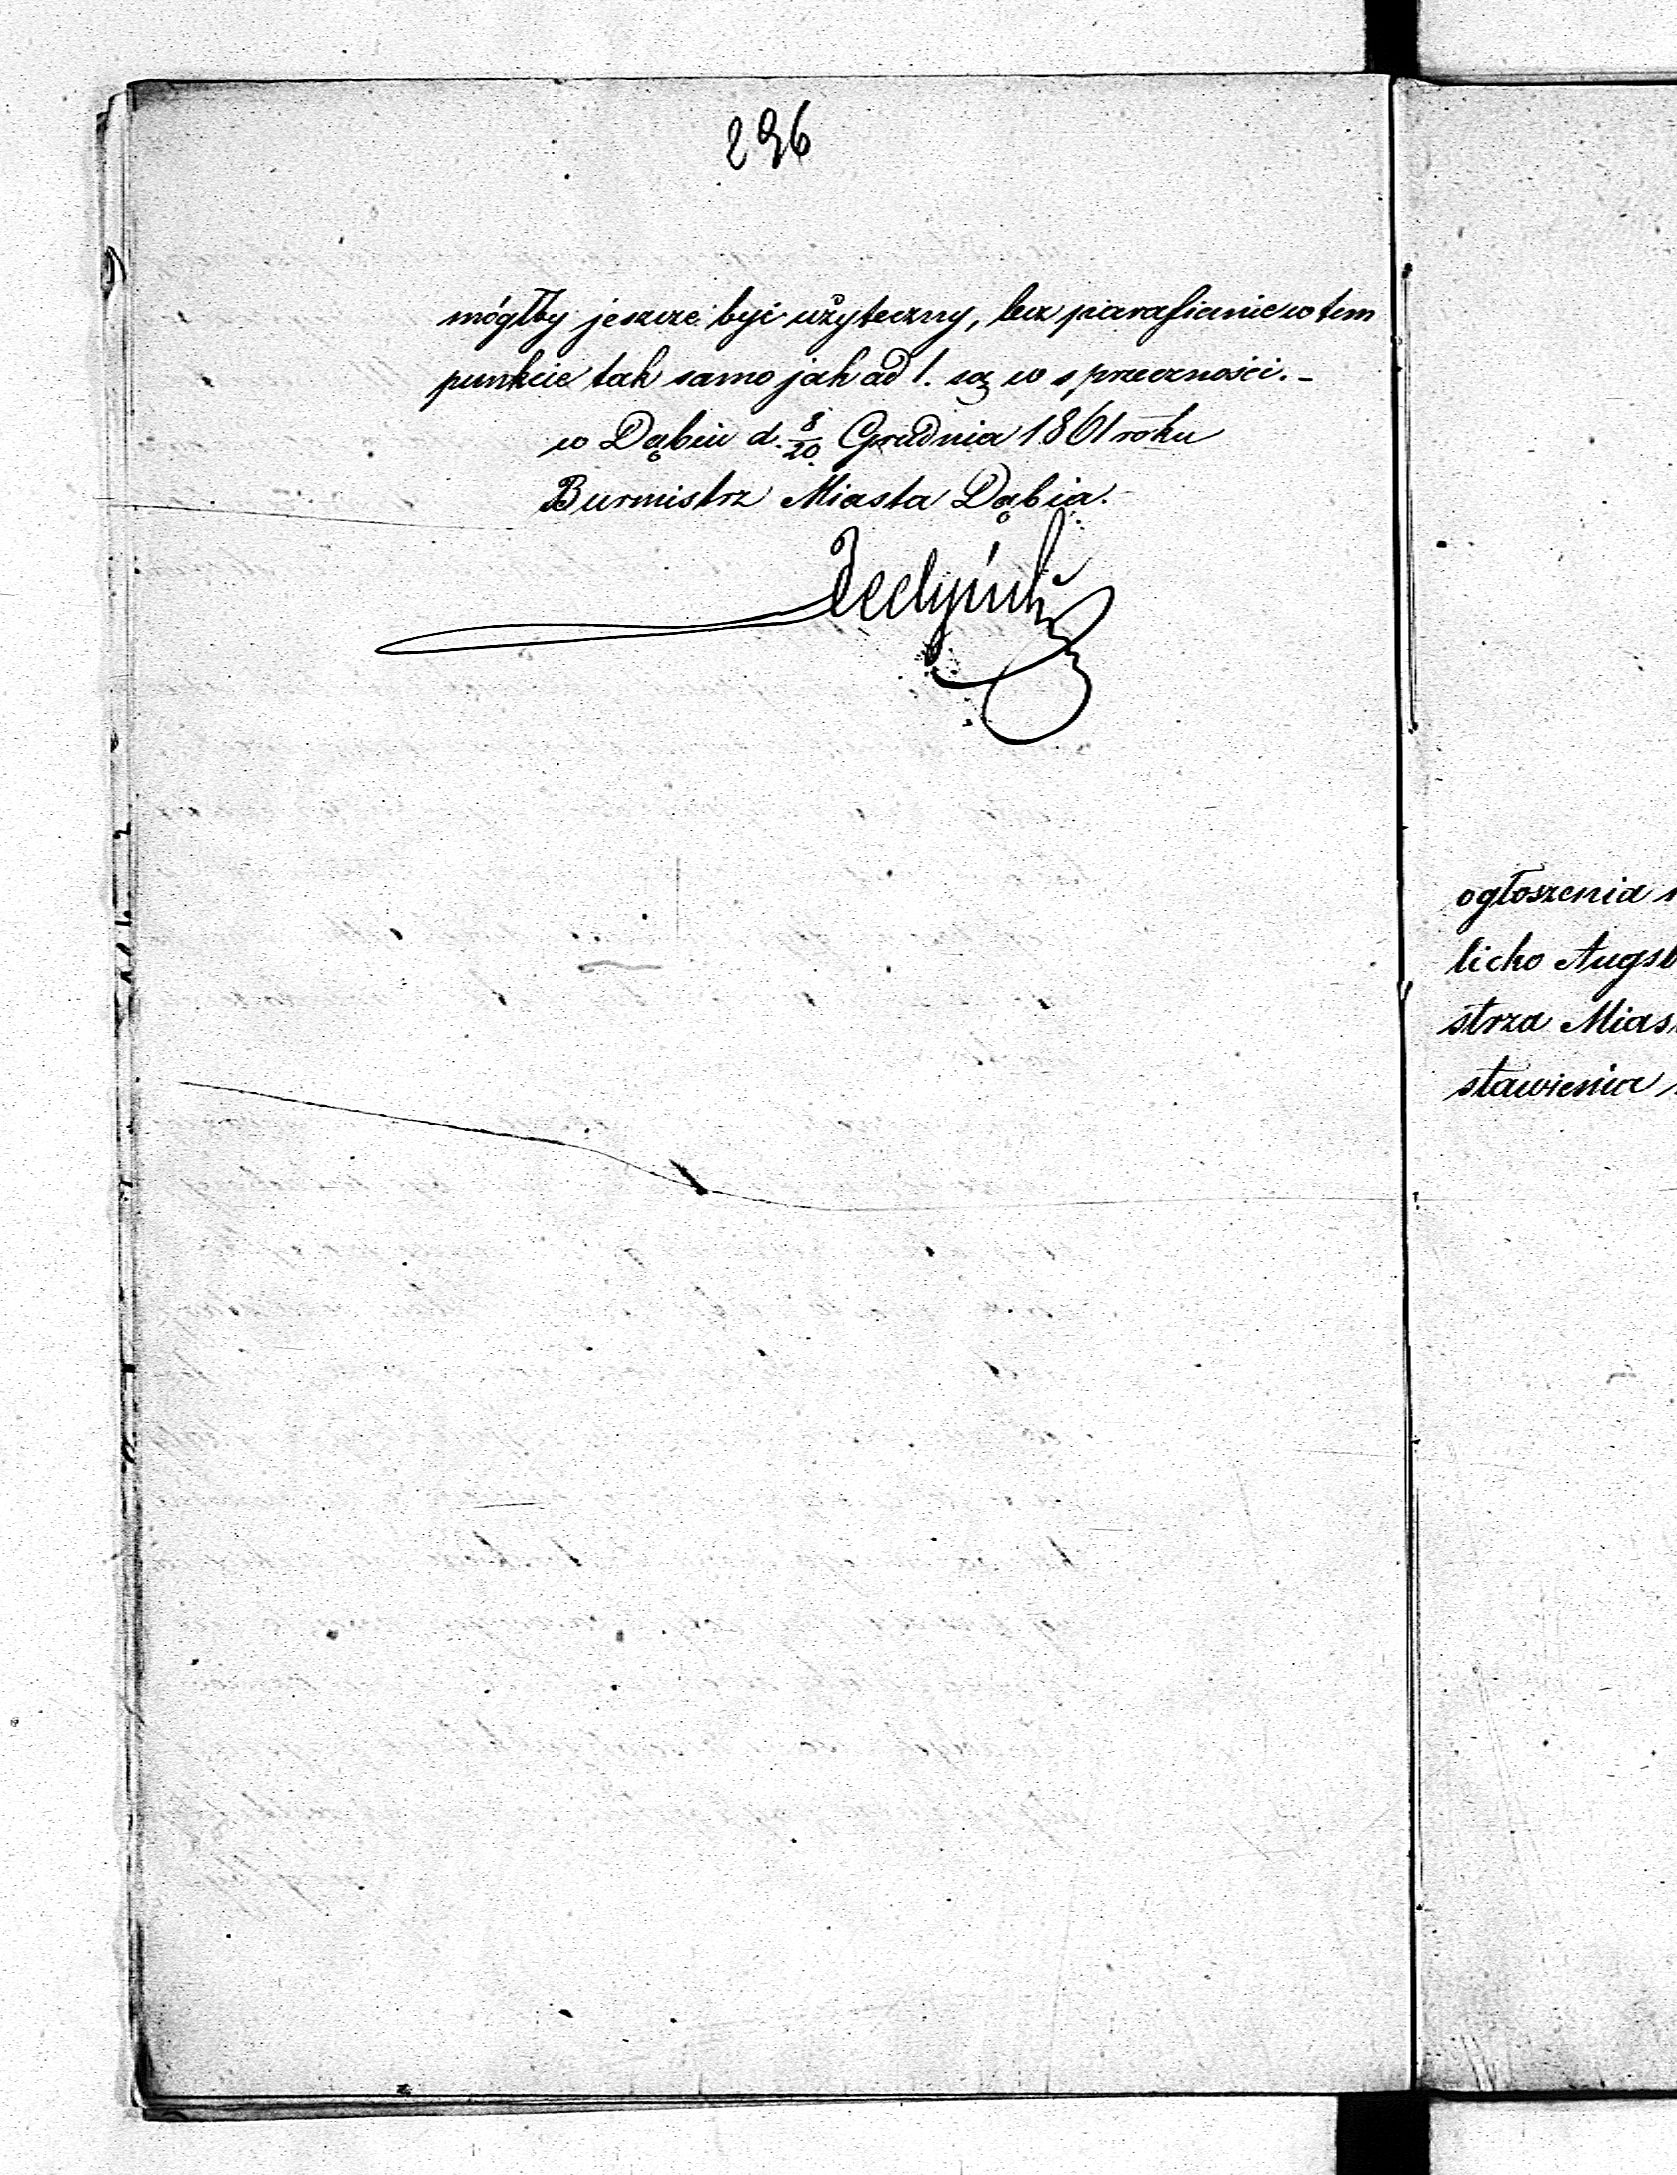 296
mógłby jeszcze być użyteczny, lecz parafianie w tem
punkcie tak samo jak ad 1. są w sprzeczności. –
w Dąbiu d. 8/20 Grudnia 1861 roku
Burmistrz Miasta Dąbia.
ogłoszenia
licko Augsb
strza Mias
stawienia